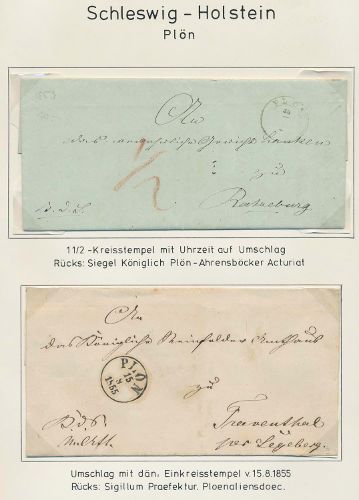 Schleswig - Holstein
Plön
An
das
zu
Ratzeburg
1/2
11/2 -Kreisstempel mit Uhrzeit auf Umschlag
Rücks: Siegel Königlich Plön-Ahrensböcker Acturiat
An
das Königliche Reinfelder Amthaus
PLÖN
15
8
1855
zu
Traventhal
per Segeberg.
Umschlag mit dän. Einkreisstempel v.15.8.1855
Rücks: Sigillum Praefektur. Ploenaliensdoec.